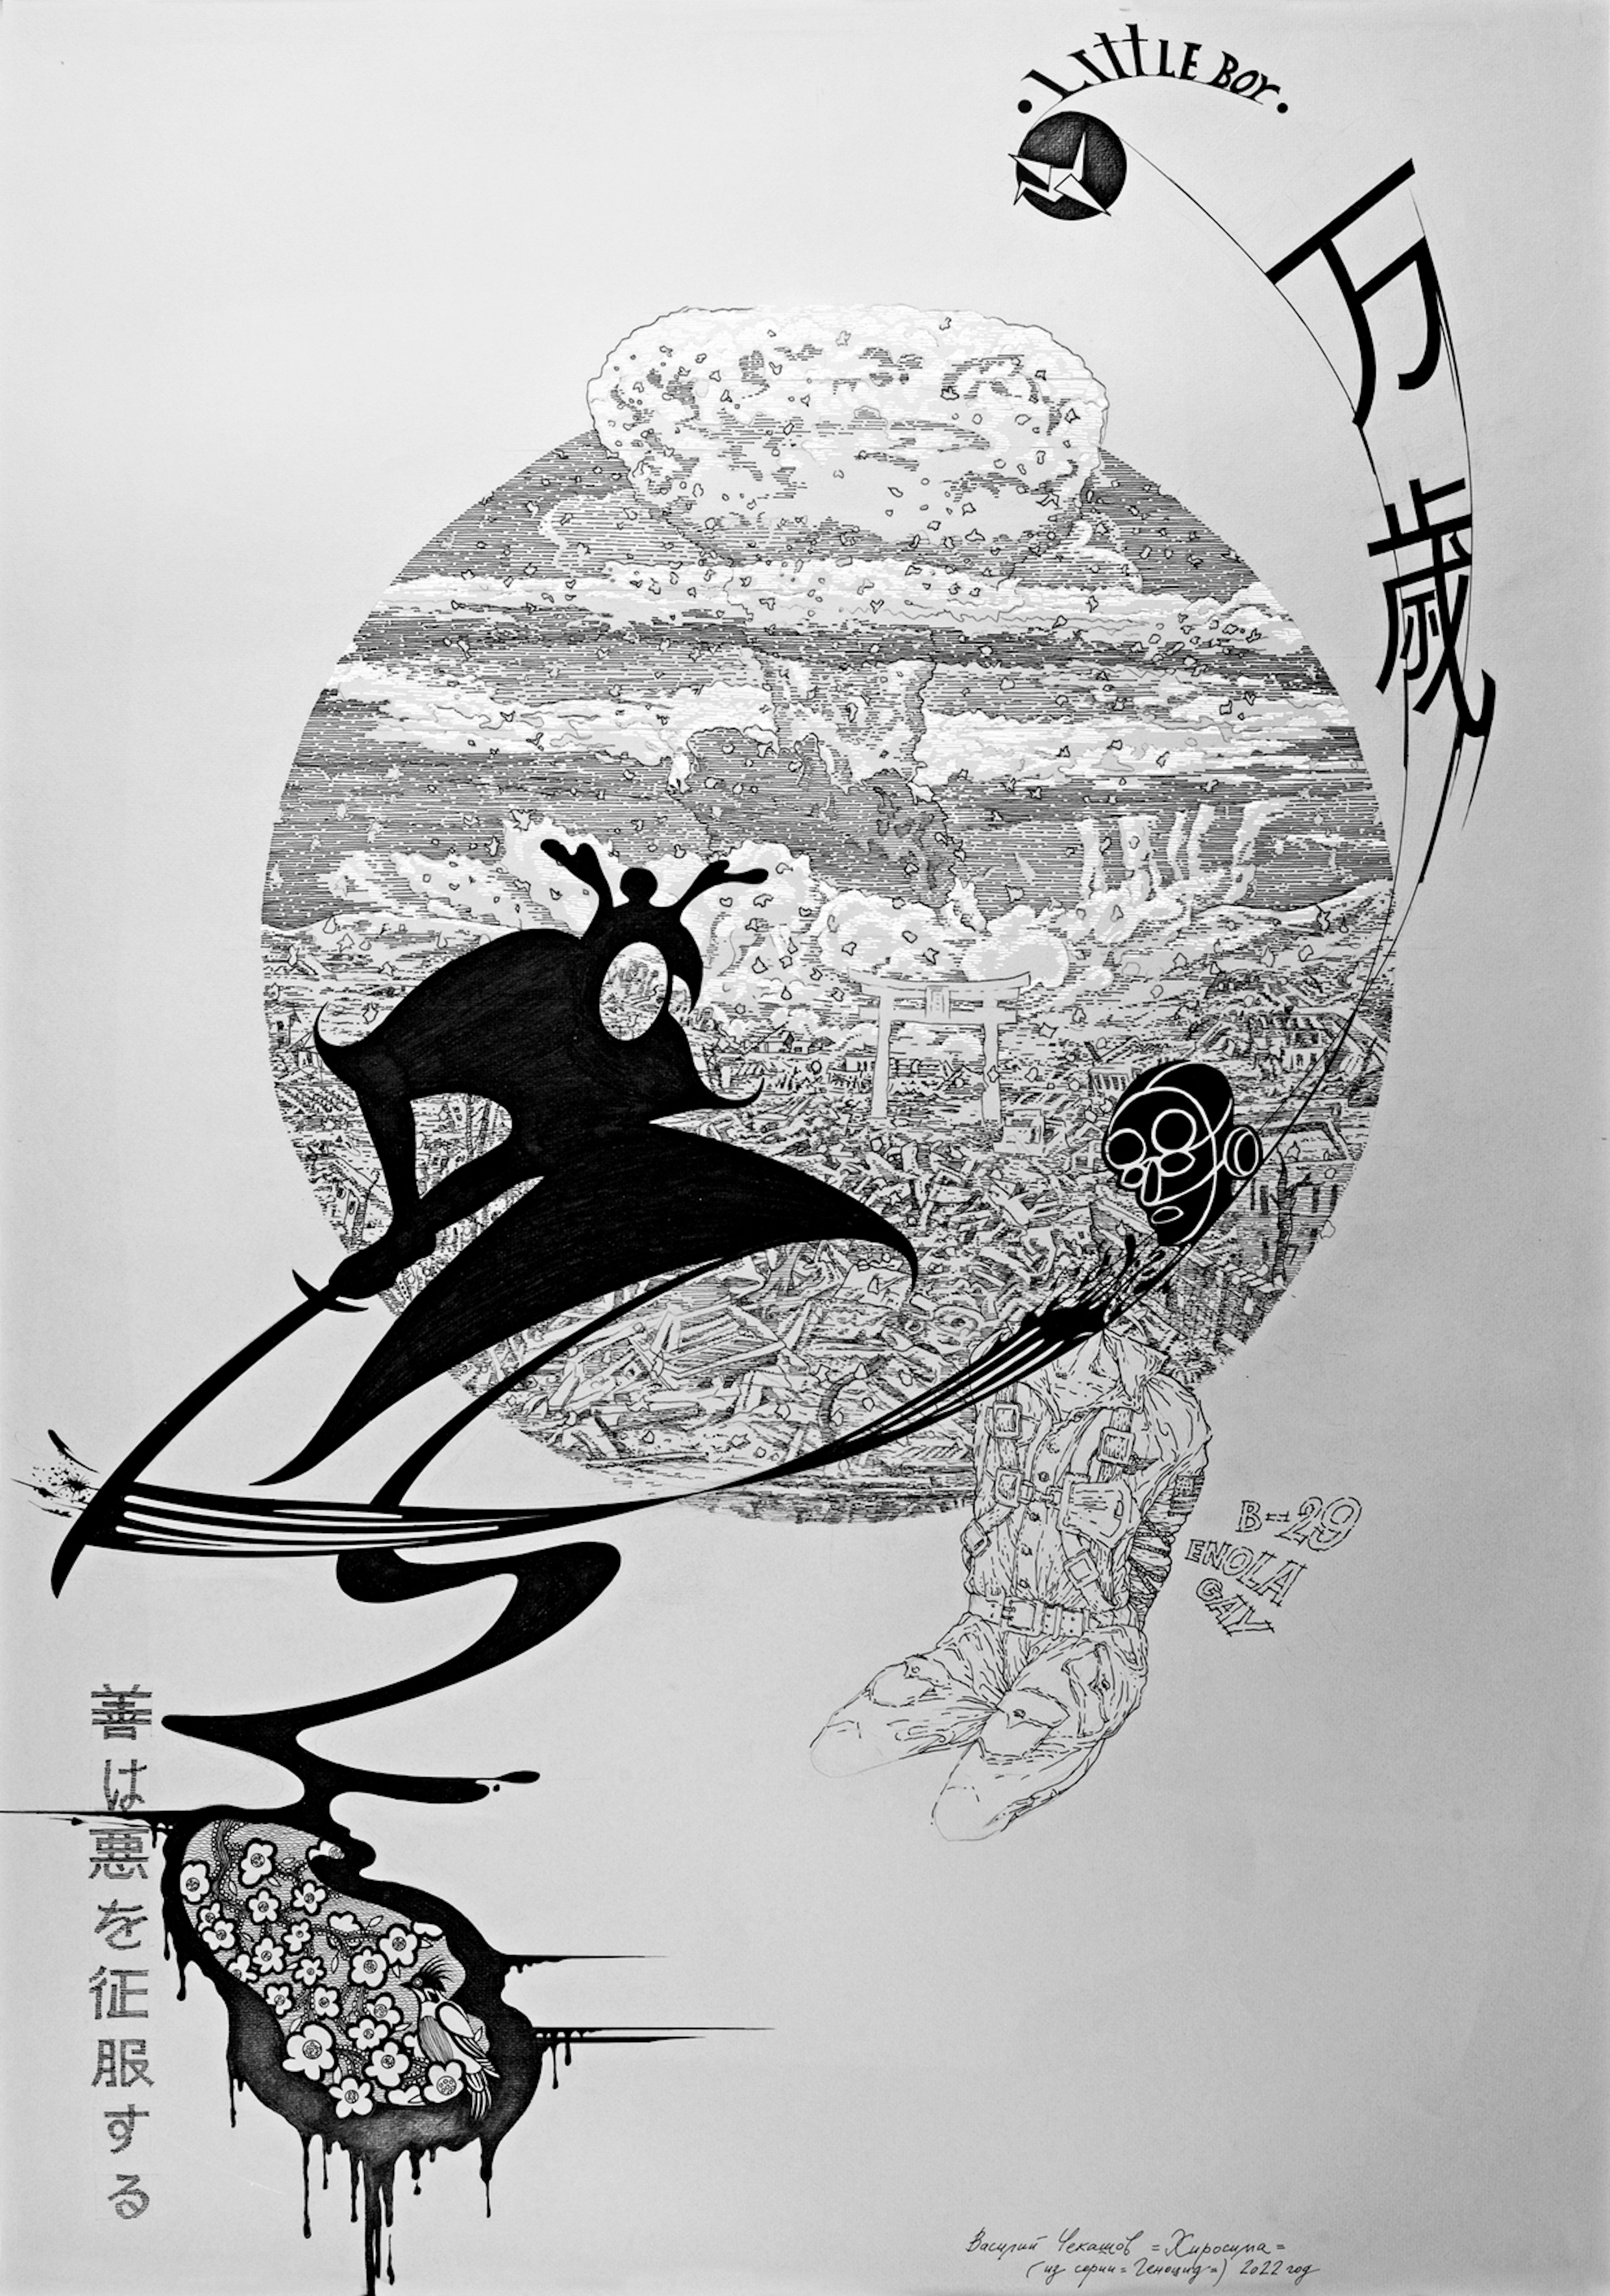 • LITTLE BOY •
万歳
B-29
ENOLA
GAY
善は悪を征服する
Василий Чекашов =Хиросима=
(из серии =Геноцид=) 2022 год